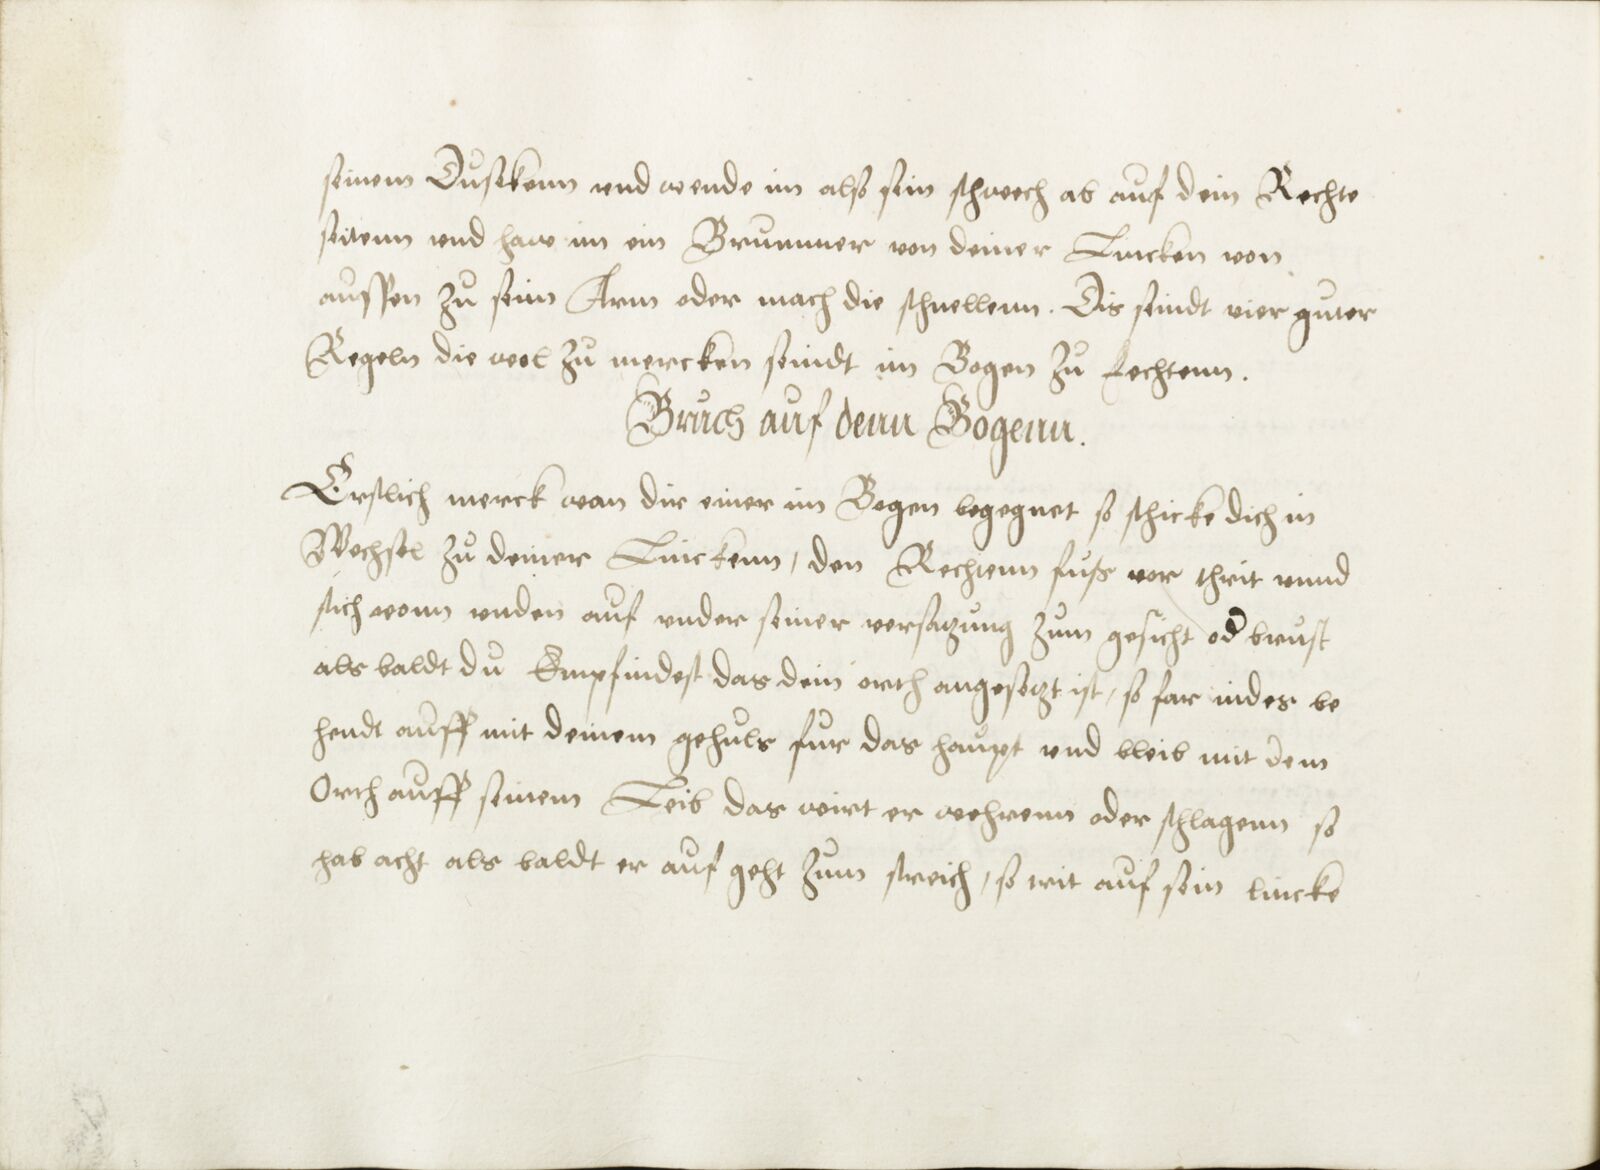 seinem Dusekenn vnd wende im also sein schwech ab auf dein Rechte
seitenn vnd haw im ein Brummer von deiner Lincken von
aussen zu seim Arm oder mach die schnellenn. Dis seindt vier guter
Regeln die wol zu mercken seindt im Bogen zu fechtenn.
Bruch auf denn Bogenn.
Erstlich merck wan dir einer im Bogen begegnet so schicke dich in
Wechsel zu deiner Linckenn, den Rechtenn fuß vor thrit vnnd
stich vonn vnden auf vnder seiner versatzung zum gesicht od brust
als baldt du Empfindest das dein orth angesetzt ist, so far indes be
hendt auff mit deinem gehuls fur das haupt vnd bleib mit dem
Orth auff seinem Leib das wirt er wehrenn oder schlagenn so
hab acht als baldt er auf geht zum streich, so trit auf sein lincke